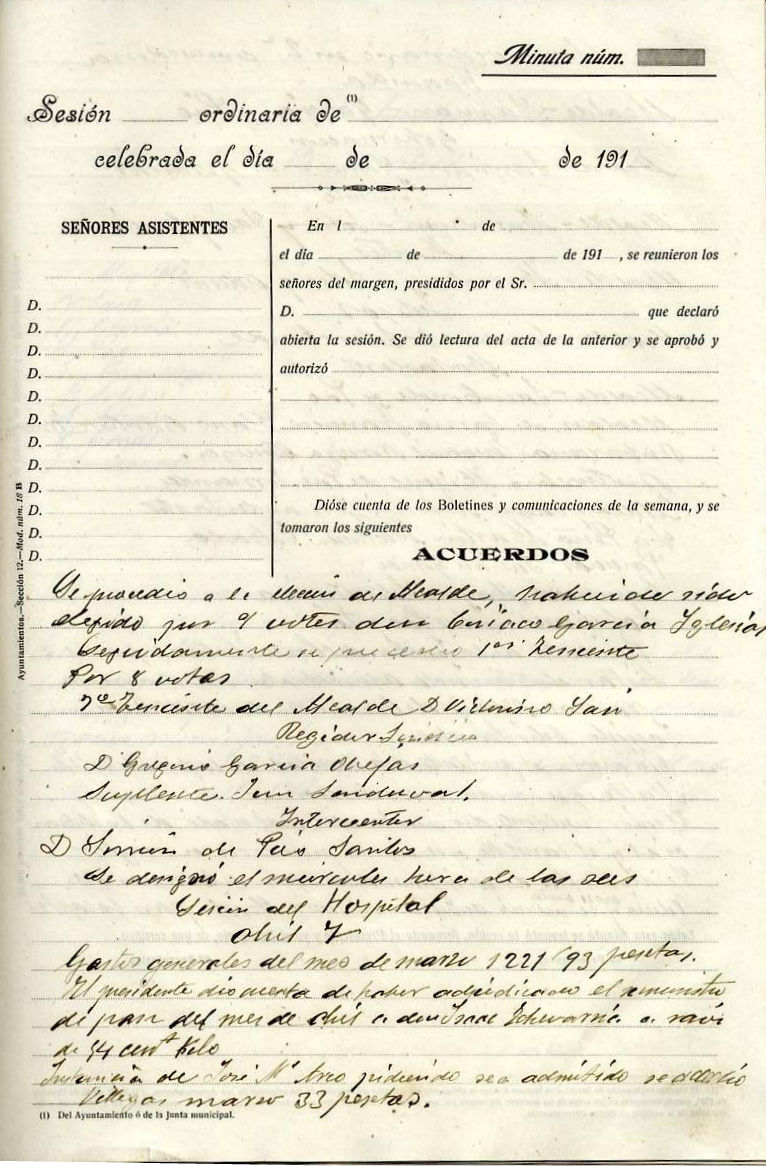 Minuta núm.
Sesión ordinaria de (1)
celebrada el día de de 191
SEÑORES ASISTENTES
D.
D.
D.
D.
D.
D.
D.
D.
D.
D.
D.
D.
En l de
el día de de 191 , se reunieron los
señores del margen, presididos por el Sr.
D. que declaró
abierta la sesión. Se dió lectura del acta de la anterior y se aprobó y
autorizó
Dióse cuenta de los Boletines y comunicaciones de la semana, y se
tomaron los siguientes
ACUERDOS
Se procedio a la elección de Alcalde, habiendo sido
elegido por 9 votos don Ciriaco Garcia Yglesias
Seguidamente se 1er Teniente
Por 8 votos
2º Teniente del Alcalde D Victorino
Regidor Sindico
D Gregorio Garcia
Suplente. Sandoval.
Interventor
D de Santos
Se designó el miercoles hora de las seis
Sesion del Hospital
Abril 7
Gastos generales del mes de marzo 1221/93 pesetas.
El presidente dio cuenta de haber adjudicado el suministro
de pan del mes de abril a don Isaac Echevarria a razon
de 54 cent Kilo
Instancia de José Mª pidiendo sea admitido se
Villegas marzo 33 pesetas.
(1) Del Ayuntamiento ó de la Junta municipal.
Ayuntamientos.—Sección 12.—Mod. núm. 18 B